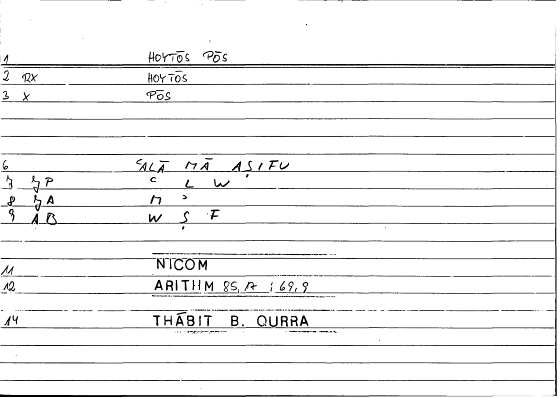 1 HOYTŌS PŌS
2 RX HOYTŌS
3 X PŌS
6 ʿALĀ MĀ AṢIFU
7 ʒP ʿ L W
8 ʒA M ʾ
9 AB W Ṣ F
11 NICOM
12 ARITHM 85,17 : 69,9
14 THĀBIT B. QURRA